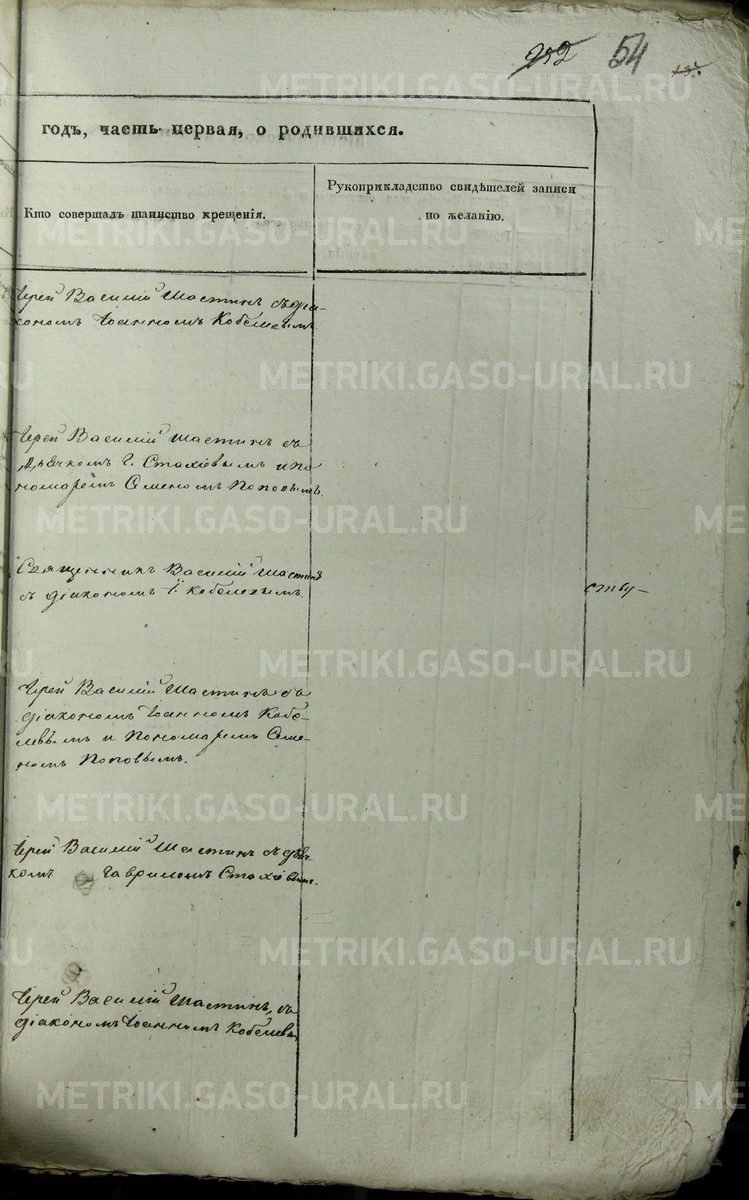 252 54
METRIKI.GASO-URAL.RU
годъ, часть первая, о родившихся.
Кто совершалъ таинство крещенія.
Рукоприкладство свидѣтелей записи
по желанію.
Іерей Василій Шастинъ съ діа-
кономъ Іоанномъ Кобелевымъ
METRIKI.GASO-URAL.RU
Іерей Василій Шастинъ съ
дьячкомъ Г. Стахіевымъ и по
номаремъ Семеномъ Поповымъ.
METRIKI.GASO-URAL.RU
Священникъ Василій Шастинъ
съ діакономъ І. Кобелевымъ
METRIKI.GASO-URAL.RU
Іерей Василій Шастинъ съ
діакономъ Іоанномъ Кобе-
левымъ и Пономаремъ Семе-
номъ Поповымъ.
METRIKI.GASO-URAL.RU
Іерей Василій Шастинъ съ дьяч
комъ Гавриломъ Стахіевымъ.
METRIKI.GASO-URAL.RU
Іерей Василій Шастинъ, съ
діакономъ Іоанномъ Кобелевы
METRIKI.GASO-URAL.RU